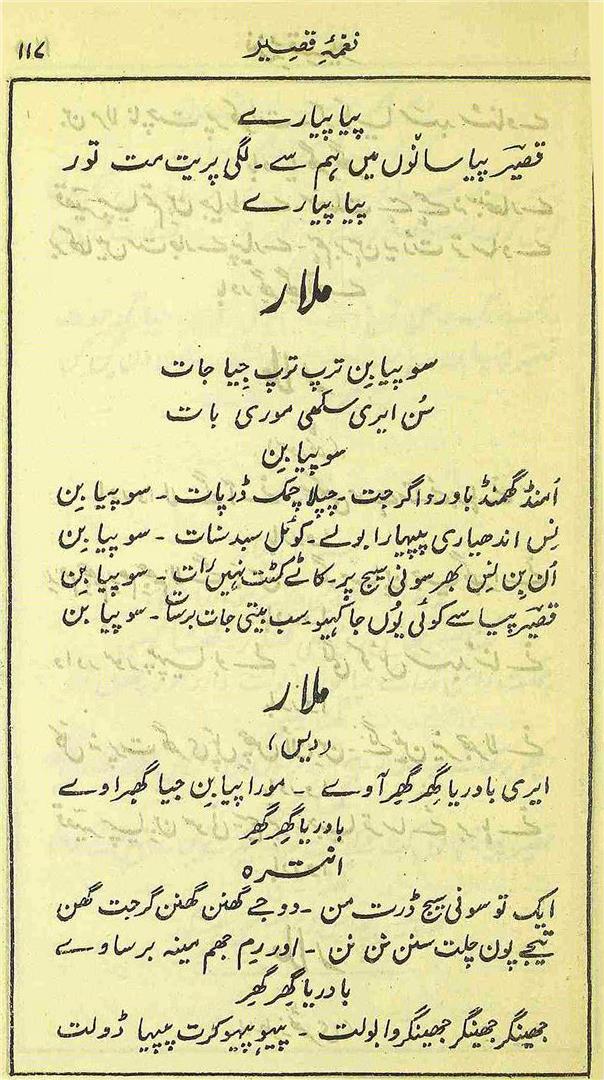 نغمۂ قصیر
۱۱۷
پیا پیارے
قصیر پیا سانوں میں ہم سے ۔ لگی پریت مت توڑ
پیا پیارے
ملار
سو پیا بِن ترپ ترپ جِیا جات
سُن ایری سَکھی موری بات
سو پیا بِن
اُمنڈ گھمنڈ باوروا گرجت ۔ چپلا چمک ڈرپات ۔ سو پیا بِن
نِس اندھیاری پپیہارا بولے ۔ کوئل سبد سنات ۔ سو پیا بِن
اُن بِن نِس بھر سونی سیج پر ۔ کاٹے کٹت نہیں رات ۔ سو پیا بِن
قصیر پیا سے کوئی یُوں جا کہیو ۔ سب بیتی جات برسات ۔ سو پیا بن
ملار
(دیس)
ایری بادریا گِھر گِھر آوے ۔ مورا پیا بِن جیا گھبراوے
بادریا گِھر گِھر
انترہ
ایک تو سونی سیج ڈرت من ۔ دوجے گھنن گھنن گرجت گھن
تیجے پون چلت سنن نن نن ۔ اور رِم جھم مینہ برساوے
بادریا گِھر گِھر
جھینگر جھینگر جھینگروا بولت ۔ پیہو پیہو کرت پپیہا ڈولت